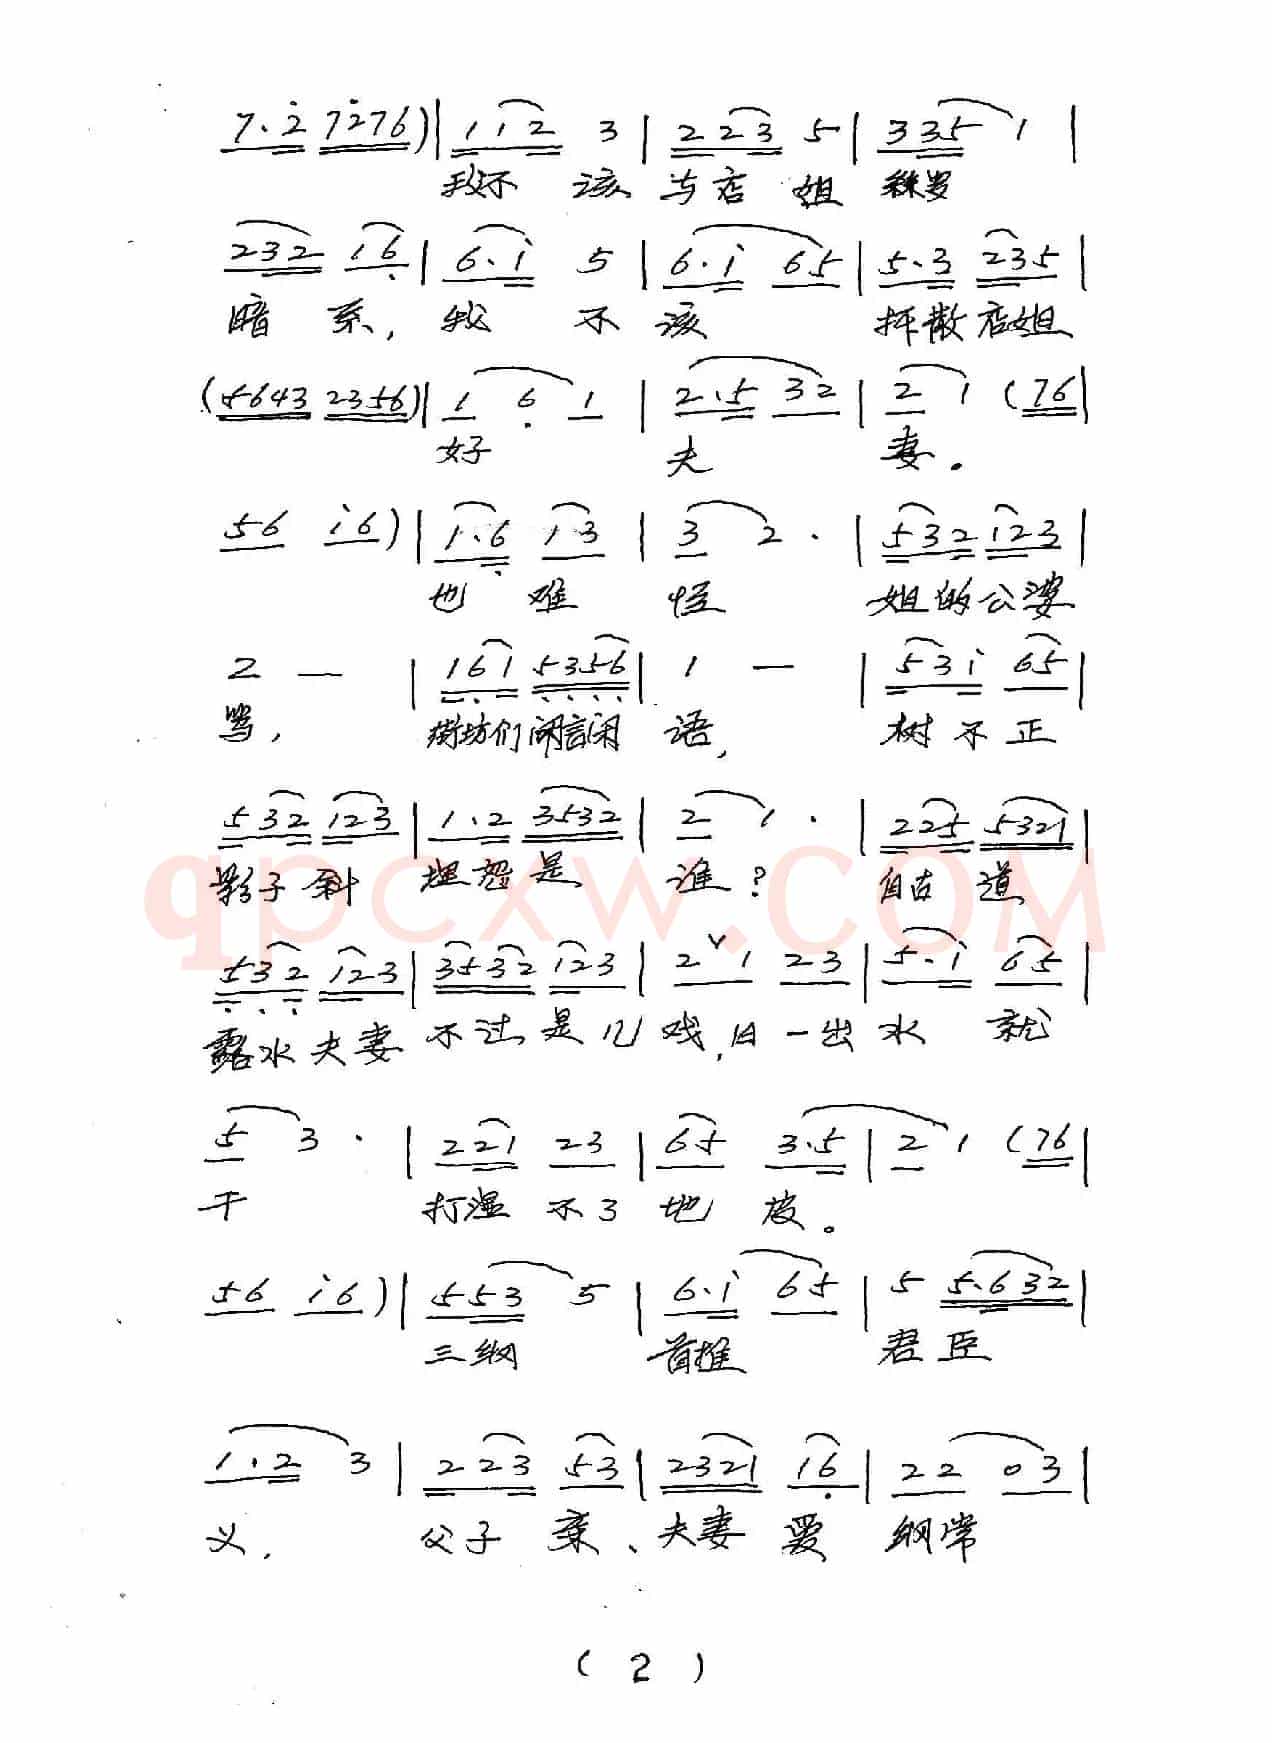 7.2 7276) | 1 1.2 3 | 2 2 3 5 | 3 3 5 1 |
我不 该 与店 姐 鞋萝
2 3 2 1 6 | 6.i 5 | 6.i 65 | 5.3 2 3 5 |
暗 系, 我 不 该 拆散店姐
(5643 2356) | 1 6 1 | 2.5 32 | 2 1 (76 |
好 夫 妻。
56 i6) | 1.6 13 | 3 2 . | 532 123 |
也 难 怪 姐的公婆
2 — | 161 5356 | 1 — | 53i 65 |
骂, 街坊们闲言闲 语, 树不正
532 123 | 1.2 3532 | 2 1 . | 225 5321 |
影子斜 埋怨是 谁? 自古 道
532 123 | 3532 123 | 2 1 23 | 5.i 65 |
露水夫妻 不过是儿戏,日一出水 就
5 3 . | 221 23 | 65 3.5 | 2 1 (76 |
干 打湿 不了 地 皮。
56 i6) | 553 5 | 6.i 65 | 5 5.632 |
三纲 首推 君臣
1.2 3 | 223 53 | 2321 16 | 22 03 |
义, 父子 亲、夫妻 爱 纲常
qpcxw.COM
( 2 )